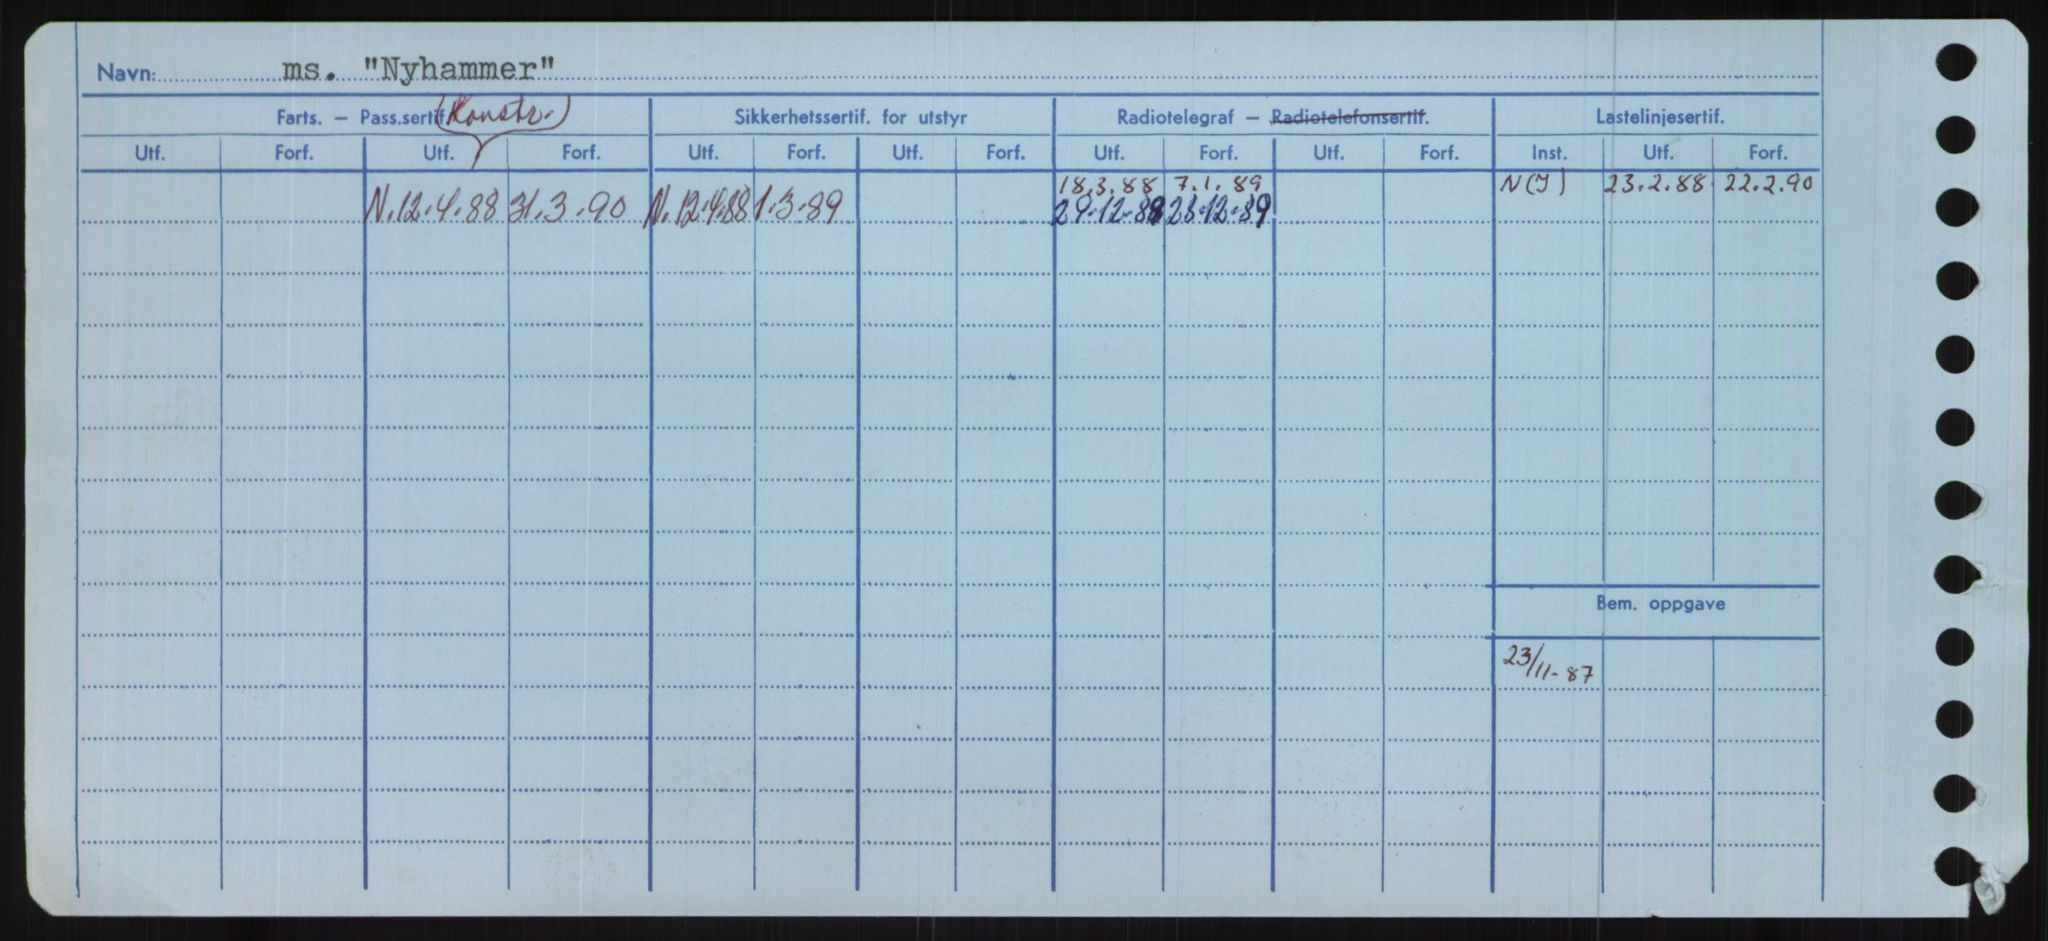 Navn: ms. "Nyhammer"
Farts. – Pass.sertif. (Konstr.) Sikkerhetssertif. for utstyr Radiotelegraf – Radiotelefonsertif. Lastelinjesertif.
Utf. Forf. Utf. Forf. Utf. Forf. Utf. Forf. Utf. Forf. Utf. Forf. Inst. Utf. Forf.
18.3.88 7.1.89 N(I) 23.2.88 22.2.90
N.12.4.88 31.3.90 N.12.4.88 1.3.89 29.12.88 28.12.89
Bem. oppgave
23/11-87